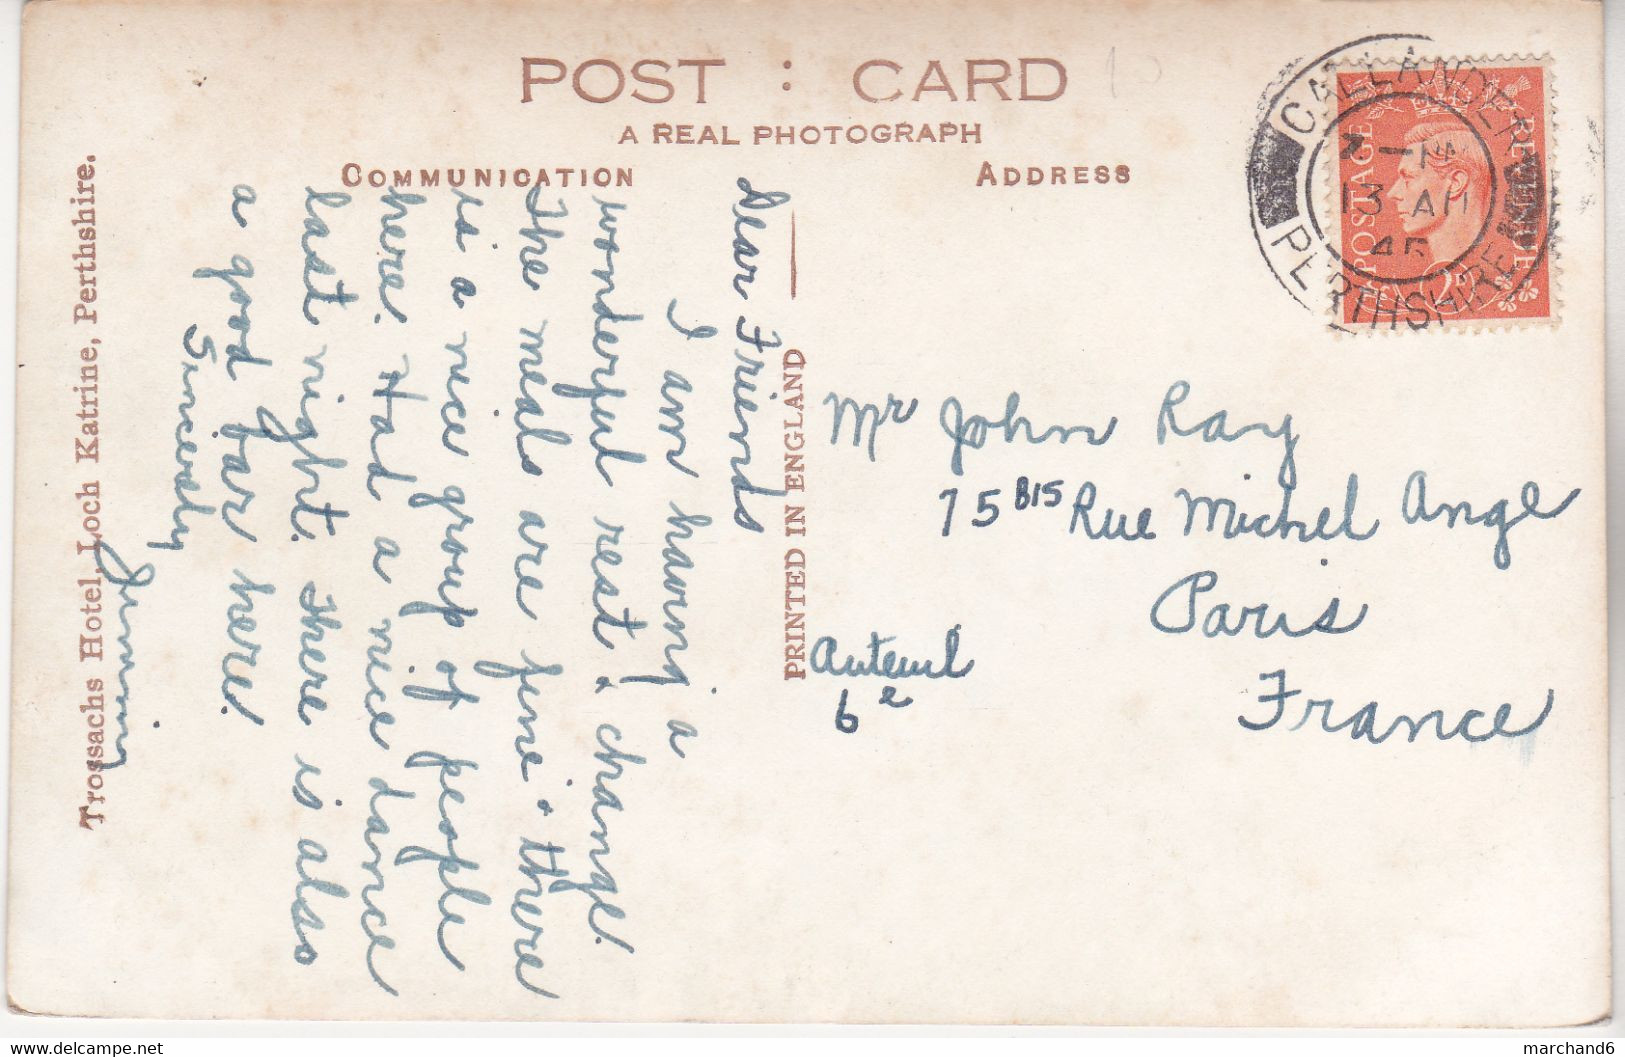 POST : CARD
A REAL PHOTOGRAPH
COMMUNICATION
ADDRESS
CALLANDER
PERTHSHIRE
13 AU
POSTAGE
REVENUE
Trossachs Hotel, Loch Katrine, Perthshire.
PRINTED IN ENGLAND
Dear Friends
I am having a
wonderful rest & change.
The meals are fine & there
is a nice group of people
here. Had a nice dance
last night. There is also
a good bar here.
Sincerely
Mr John Ray
75 BIS Rue Michel Ange
Paris
France
Auteuil
6e
marchand6
delcampe.net